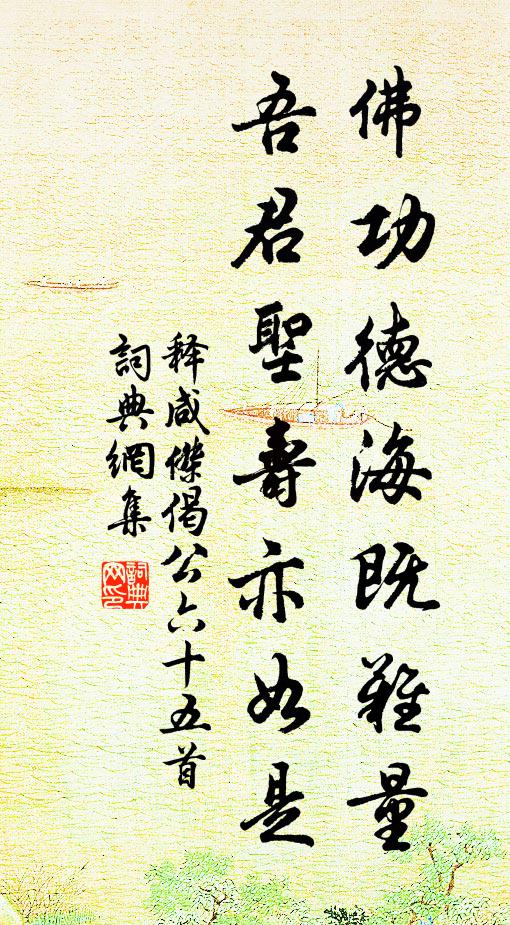 佛功德海既難量
吾君聖壽亦如是
释咸傑偈公六十五首
詞典網集